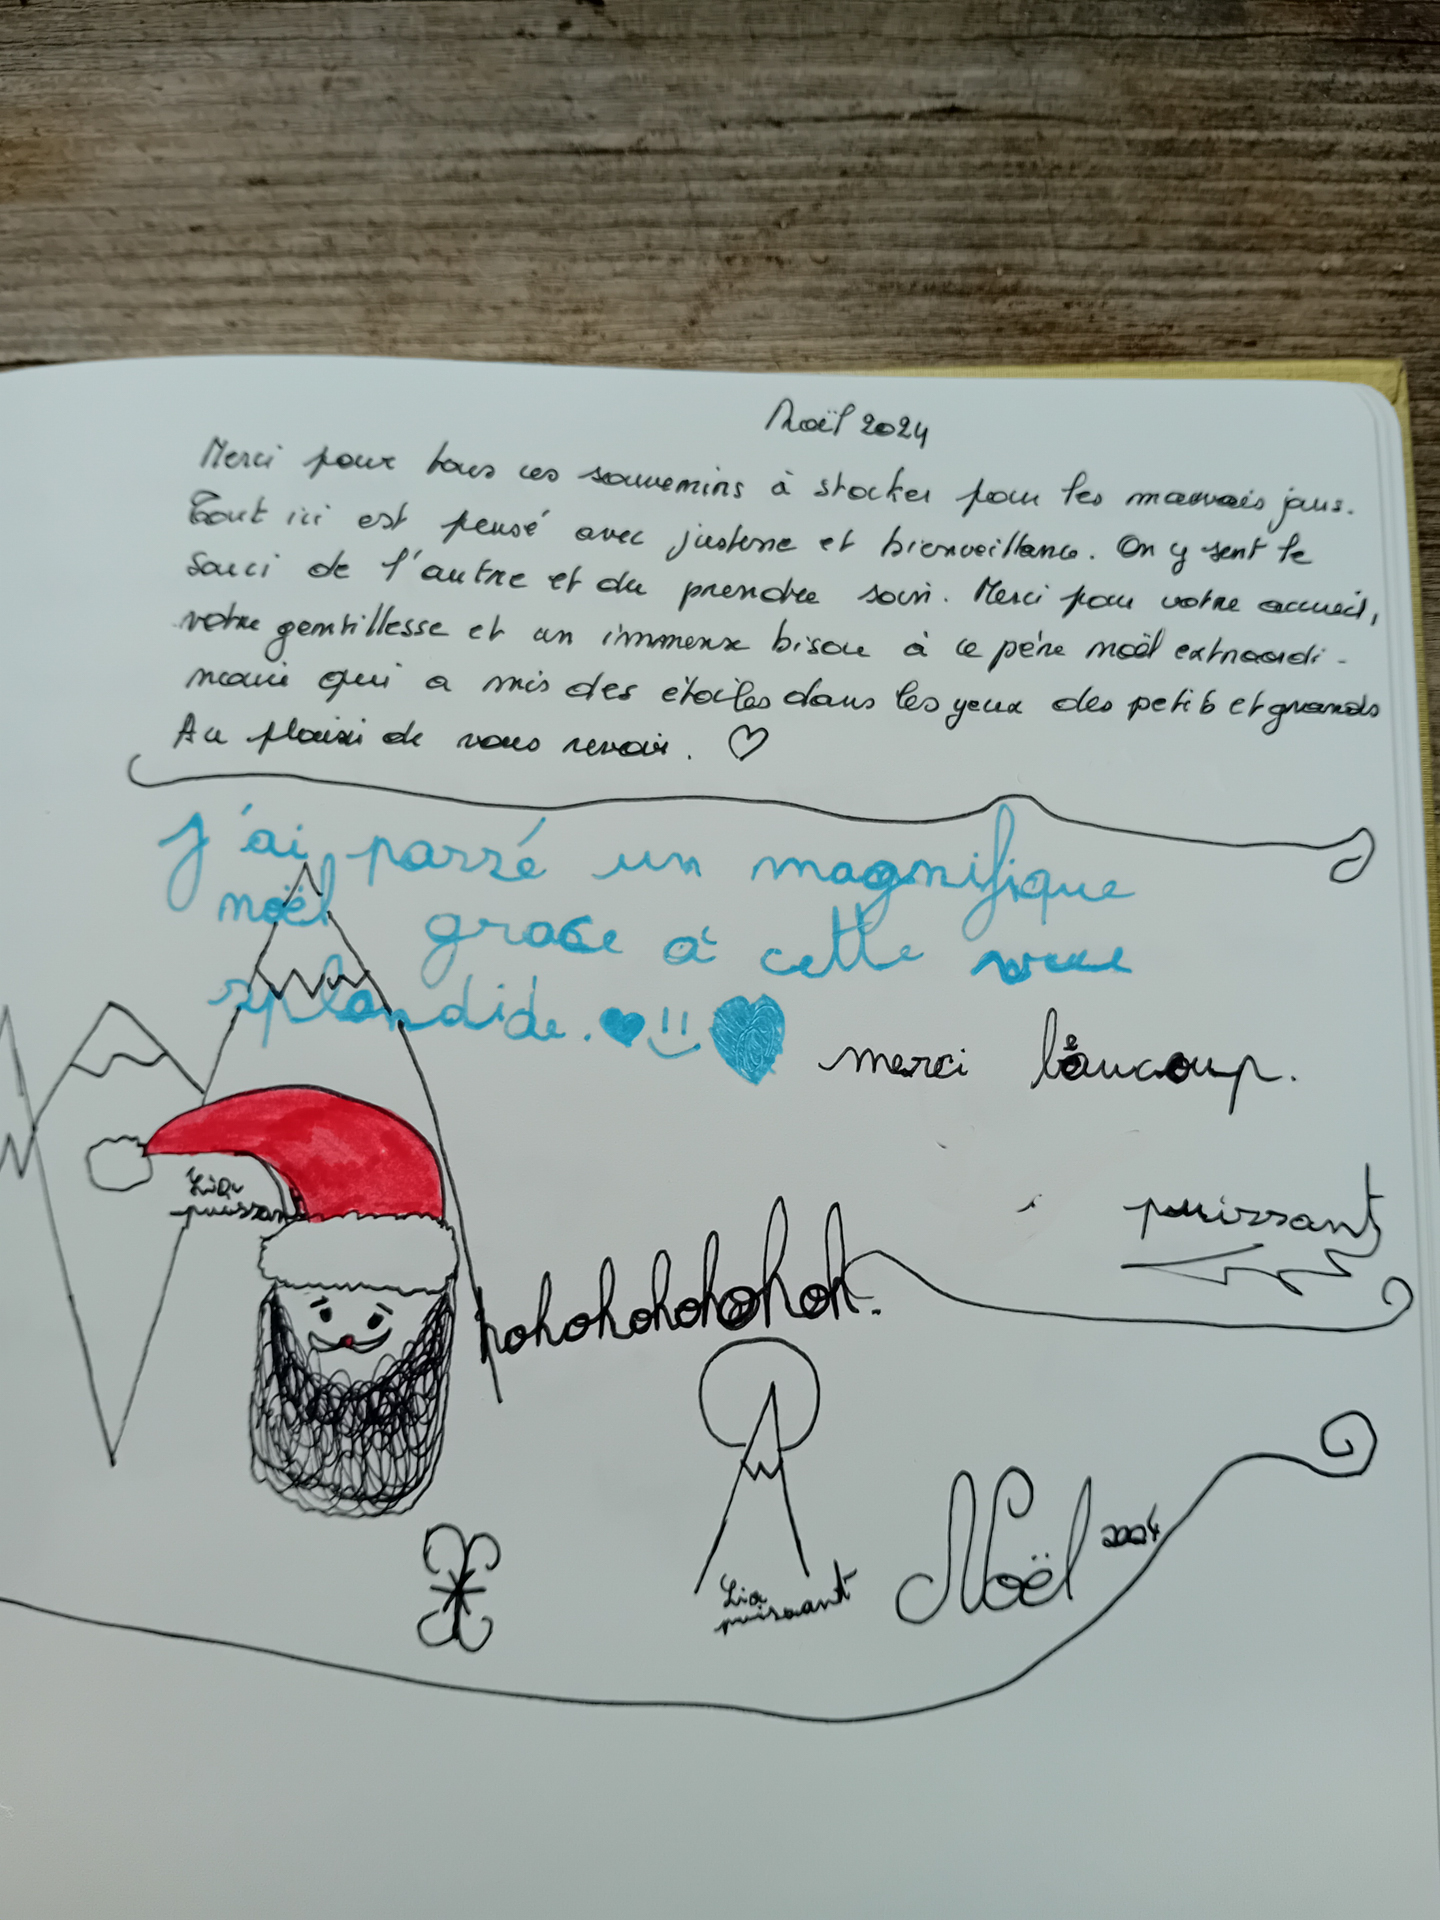 Noël 2024
Merci pour tous ces souvenirs à stocker pour les mauvais jours.
Tout ici est pensé avec justesse et bienveillance. On y sent le
souci de l'autre et du prendre soin. Merci pour votre accueil,
votre gentillesse et un immense bisou à ce père noël extraordi-
naire qui a mis des étoiles dans les yeux des petits et grands
Au plaisir de vous revoir. ♡
J'ai passé un magnifique
noël grace à cette vue
splendide. ♥ !! ♥
merci beaucoup.
Lia
puissant
puissant
hohohohohohohoh.
Lia
puissant
Noël 2024